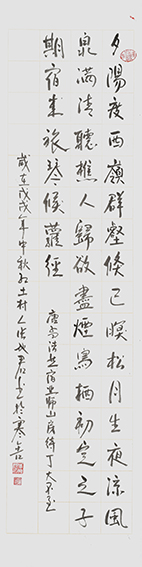 夕陽度西嶺群壑倏已暝松月生夜涼風
泉滿清聽樵人歸欲盡煙鳥棲初定之子
期宿來孤琴候蘿徑
唐孟浩然宿業師山房待丁大不至
歲在戊戌年中秋